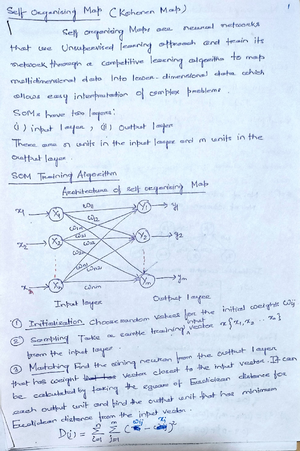 Self Organising Map (Kohonen Map)
Self Organising Maps are neural networks
that use Unsupervised learning approach and train its
network through a competitive learning algorithm to maps
multidimensional data into lower-dimensional data which
allows easy interpretation of complex problems.
SOMs have two layers:
(i) input layer, (ii) Output layer
There are n units in the input layer and m units in the
output layer.
SOM Training Algorithm
Architecture of self organising Map
x1 X1 w11 Y1 y1
w12
x2 X2 Y2 y2
Xn wnm Ym ym
Input layer Output layer
① Initialization Choose random values for the initial weights wij
② Sampling Take a training input vector x{x1, x2 .. xn}
from the input layer.
③ Matching Find the winning neuron from the output layer
that has weight vector closest to the input vector. It can
be calculated by taking the square of Euclidean distance for
each output unit and find the output unit that has minimum
Euclidean distance from the input vector.
D(j) = n∑i=1 m∑j=1 (wij - xi)²